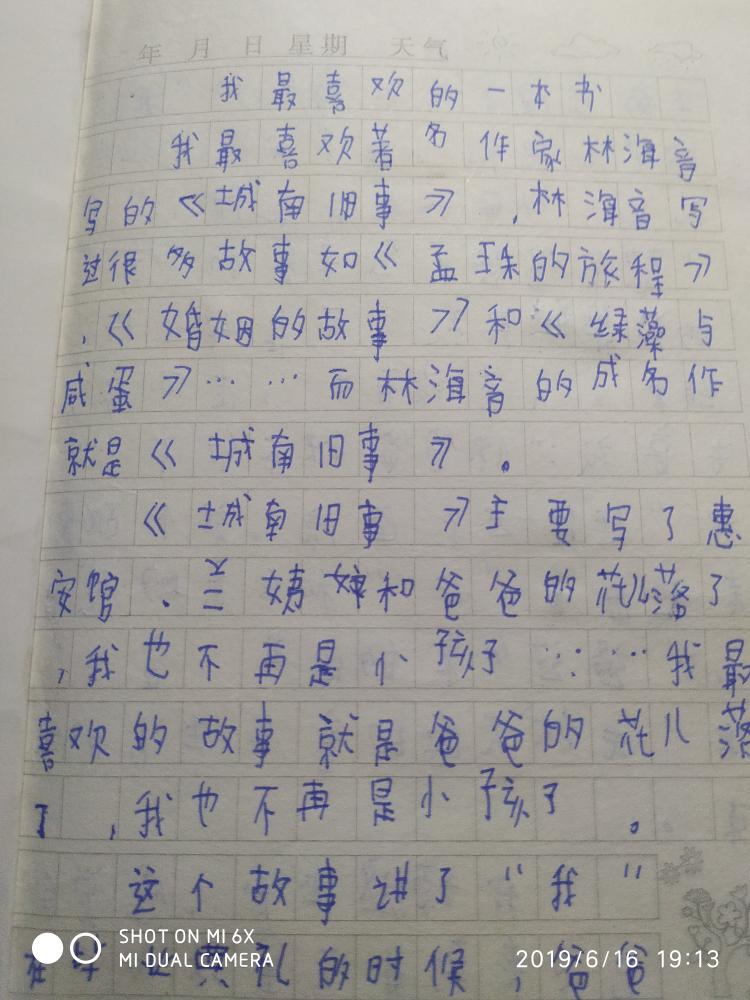 年 月 日 星期 天气
我最喜欢的一本书
我最喜欢著名作家林海音
写的《城南旧事》,林海音写
过很多故事如《孟珠的旅程》
,《婚姻的故事》和《绿藻与
咸蛋》……而林海音的成名作
就是《城南旧事》。
《城南旧事》主要写了惠
安馆、兰姨娘和爸爸的花儿落了
,我也不再是小孩子……我最
喜欢的故事就是爸爸的花儿落
了,我也不再是小孩了。
这个故事讲了“我”
在毕业典礼的时候,爸爸
SHOT ON MI 6X
MI DUAL CAMERA
2019/6/16 19:13